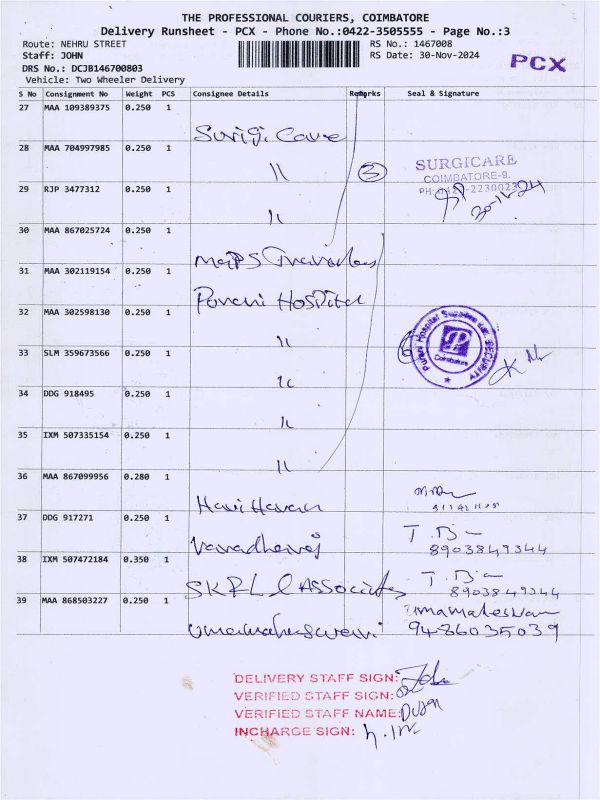 THE PROFESSIONAL COURIERS, COIMBATORE
Delivery Runsheet - PCX - Phone No.:0422-3505555 - Page No.:3
Route: NEHRU STREET RS No.: 1467008
Staff: JOHN RS Date: 30-Nov-2024
PCX
DRS No.: DCJB146700803
Vehicle: Two Wheeler Delivery
S No Consignment No Weight PCS Consignee Details Remarks Seal & Signature
27 MAA 109389375 0.250 1
Surigi Cave
28 MAA 704997985 0.250 1
〃 3 SURGICARE
COIMBATORE-9.
29 RJP 3477312 0.250 1
〃 30-11-24
30 MAA 867025724 0.250 1
Maps
31 MAA 302119154 0.250 1
Hospital
32 MAA 302598130 0.250 1
〃
33 SLM 359673566 0.250 1
〃 Coimbatore
34 DDG 918495 0.250 1
〃
35 IXM 507335154 0.250 1
〃
36 MAA 867099956 0.280 1
37 DDG 917271 0.250 1
Varadharaj 8903849344
38 IXM 507472184 0.350 1
Associates 8903849344
39 MAA 868503227 0.250 1
Umamaheswari 9486035039
DELIVERY STAFF SIGN:
VERIFIED STAFF SIGN:
VERIFIED STAFF NAME:
INCHARGE SIGN: